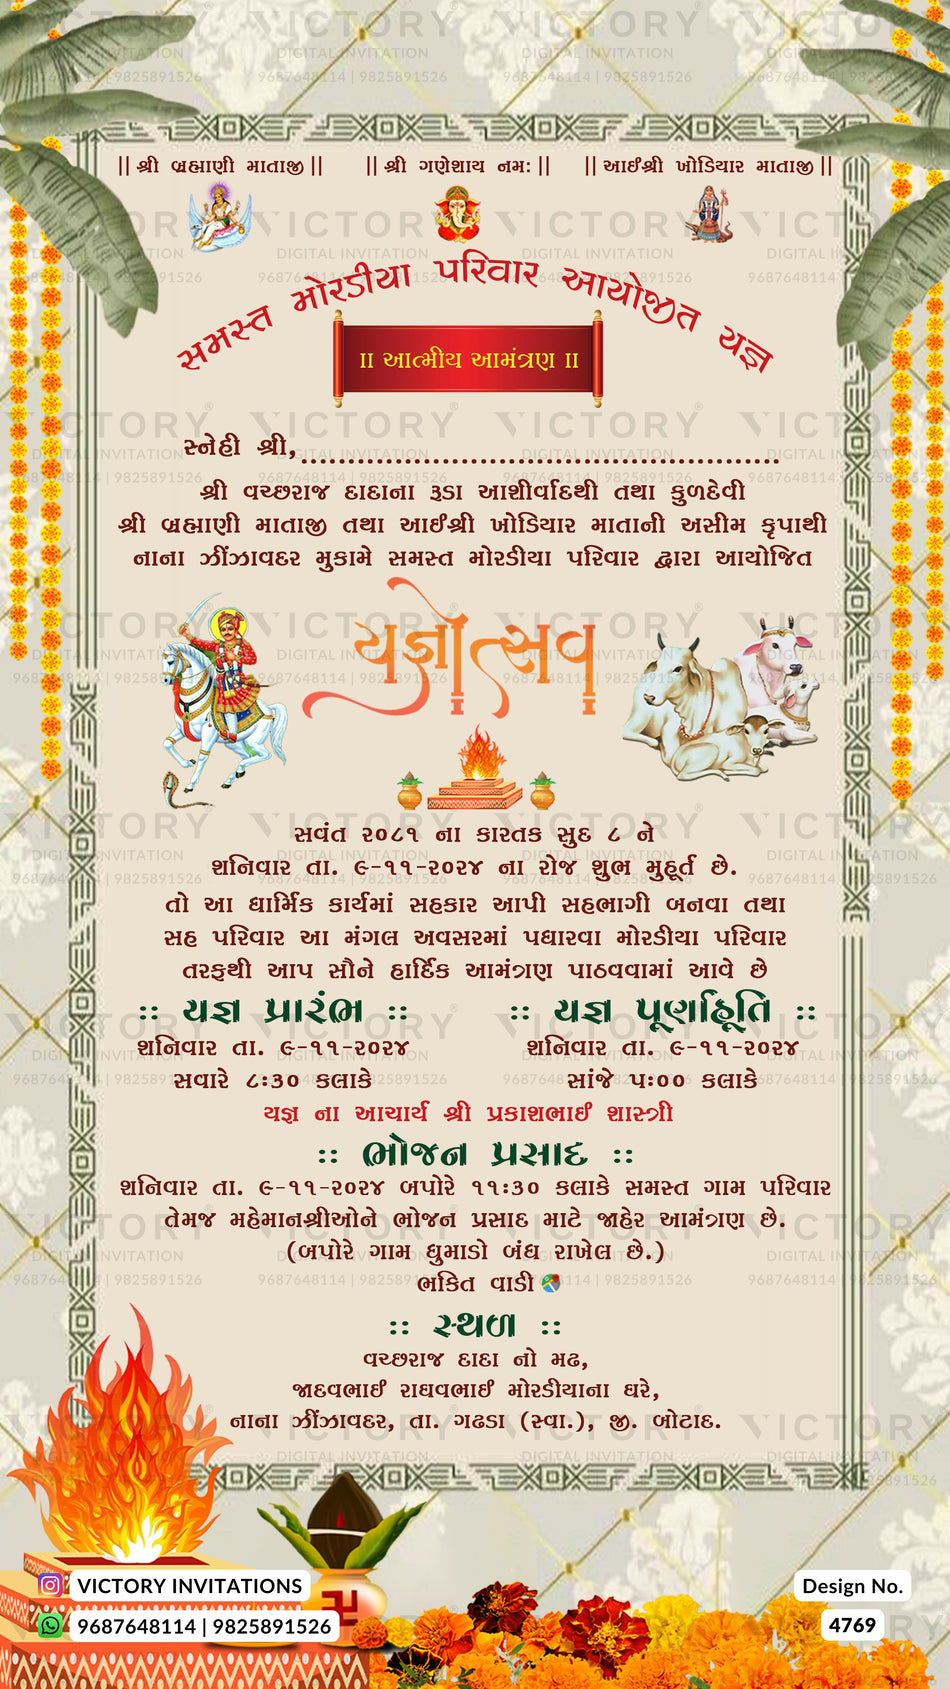 || શ્રી બ્રહ્માણી માતાજી || || શ્રી ગણેશાય નમઃ || || આઈશ્રી ખોડિયાર માતાજી ||
સમસ્ત મોરડીયા પરિવાર આયોજીત યજ્ઞ
|| આત્મીય આમંત્રણ ||
સ્નેહી શ્રી,...................................................
શ્રી વચ્છરાજ દાદાના રૂડા આશીર્વાદથી તથા કુળદેવી
શ્રી બ્રહ્માણી માતાજી તથા આઈશ્રી ખોડિયાર માતાની અસીમ કૃપાથી
નાના ઝીંઝાવદર મુકામે સમસ્ત મોરડીયા પરિવાર દ્વારા આયોજિત
યજ્ઞોત્સવ
સવંત ૨૦૮૧ ના કારતક સુદ ૮ ને
શનિવાર તા. ૯-૧૧-૨૦૨૪ ના રોજ શુભ મુહૂર્ત છે.
તો આ ધાર્મિક કાર્યમાં સહકાર આપી સહભાગી બનવા તથા
સહ પરિવાર આ મંગલ અવસરમાં પધારવા મોરડીયા પરિવાર
તરફથી આપ સૌને હાર્દિક આમંત્રણ પાઠવવામાં આવે છે
:: યજ્ઞ પ્રારંભ :: :: યજ્ઞ પૂર્ણાહૂતિ ::
શનિવાર તા. ૯-૧૧-૨૦૨૪ શનિવાર તા. ૯-૧૧-૨૦૨૪
સવારે ૮:૩૦ કલાકે સાંજે ૫:૦૦ કલાકે
યજ્ઞ ના આચાર્ય શ્રી પ્રકાશભાઈ શાસ્ત્રી
:: ભોજન પ્રસાદ ::
શનિવાર તા. ૯-૧૧-૨૦૨૪ બપોરે ૧૧:૩૦ કલાકે સમસ્ત ગામ પરિવાર
તેમજ મહેમાનશ્રીઓને ભોજન પ્રસાદ માટે જાહેર આમંત્રણ છે.
(બપોરે ગામ ધુમાડો બંધ રાખેલ છે.)
ભક્તિ વાડી
:: સ્થળ ::
વચ્છરાજ દાદા નો મઢ,
જાદવભાઈ રાઘવભાઈ મોરડીયાના ઘરે,
નાના ઝીંઝાવદર, તા. ગઢડા (સ્વા.), જી. બોટાદ.
VICTORY INVITATIONS Design No.
9687648114 | 9825891526 4769
VICTORY
DIGITAL INVITATION
9687648114 | 9825891526